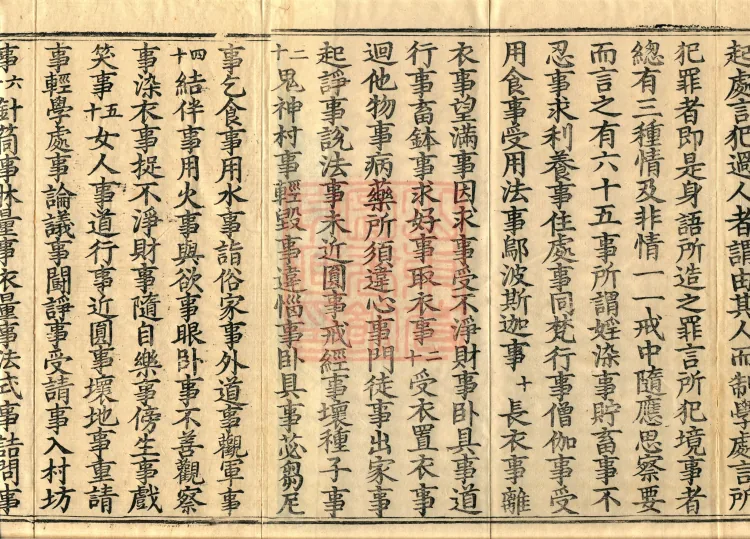 起處言犯過人者謂由其人而制學處言所
犯罪者即是身語所造之罪言所犯境事者
總有三種情及非情一一戒中隨應思察要
而言之有六十五事所謂婬染事貯畜事不
忍事求利養事住處事同梵行事僧伽事受
用食事受用法事鄔波斯迦事十長衣事離
衣事望滿事因求事受不淨財事卧具事道
行事畜鉢事求好事取衣事二十受衣置衣事
迴他物事病藥所須違心事門徒事出家事
起諍事說法事未近圓事戒經事壞種子事
二十鬼神村事輕毀事違惱事卧具事苾芻尼
事乞食事用水事詣俗家事外道事觀軍事
四十結伴事用火事與欲事眼卧事不善觀察
事染衣事捉不淨財事隨自樂事傍生事戲
笑事五十女人事道行事近圓事壞地事重請
事輕學處事論議事鬪諍事受請事入村坊
事六十針筒事牀量事衣量事法式事詰問事